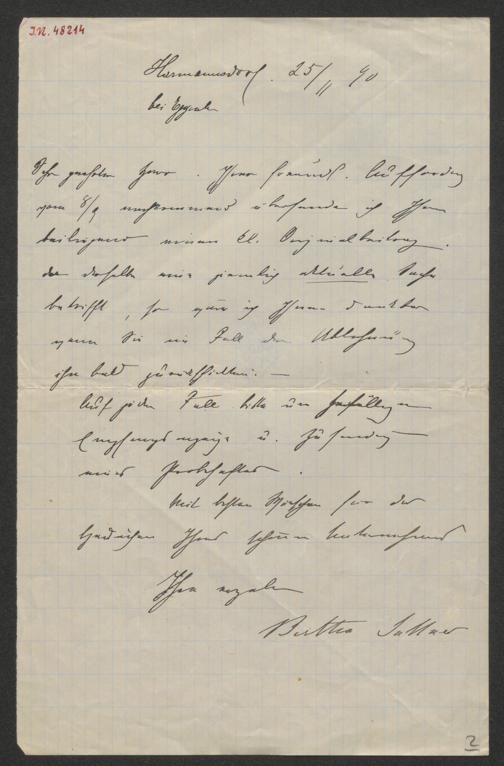 I.N. 48214
Harmannsdorf. 25/11 90
bei Eggenbg
Sehr geehrter Herr. Ihrer freundl. Aufforderung
vom 8/9 nachkommend übersende ich Ihnen
beiliegend einen kl. Originalbeitrag.
da derselbe eine ziemlich aktuelle Sache
betrifft, so wäre ich Ihnen dankbar
wenn Sie im Fall der Ablehnung
ihn bald zurückschickten. —
Auf jeden Fall bitte um gefällige
Empfangsanzeige u. Zusendung
eines Probeheftes.
Mit besten Wünschen für das
Gedeihen Ihres schönen Unternehmens
Ihre ergebene
Bertha Suttner
2